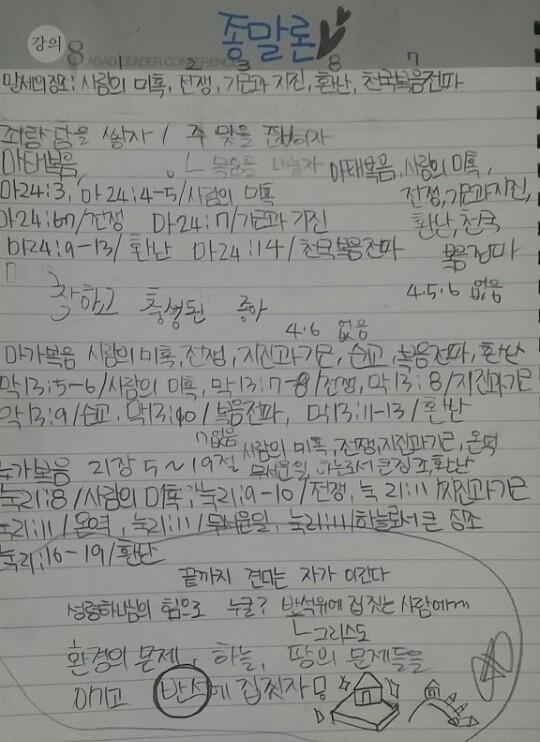 강의 8 종말론
ABAD LEADER CONFERENCE
1 2 3 8 7
말세의 징조: 사람의 미혹, 전쟁, 기근과 지진, 환난, 천국복음전파
사랑 담을 쌓자 / 주 맞을 준비하자
마태복음 ㄴ 마태복음, 사람의 미혹,
마24:3, 마24:4-5/사람의 미혹 전쟁, 기근과 지진,
마24:6-7/전쟁 마24:7/기근과 지진 환난, 천국
마24:9-13/환난 마24:14/천국복음전파 복음전파
착하고 충성된 종아 4.5.6 없음
4.6 없음
마가복음 사람의 미혹, 전쟁, 지진과 기근, 순교, 복음전파, 환난
막13:5-6/사람의 미혹, 막13:7-8/전쟁, 막13:8/지진과 기근
막13:9/순교, 막13:10/복음전파, 막13:11-13/환난
7 없음 사람의 미혹, 전쟁, 지진과 기근, 온역
누가복음 21장 5~19절 무서운일, 하늘로서 큰 징조, 환난
눅21:8/사람의 미혹, 눅21:9-10/전쟁, 눅21:11/지진과 기근
눅21:11/온역, 눅21:11/무서운일, 눅21:11/하늘로서 큰 징조
눅21:16-19/환난
끝까지 견디는 자가 이긴다
성령하나님의 힘으로 누굴? 반석위에 집 짓는 사람에게
ㄴ그리스도
환경의 문제, 하늘, 땅의 문제들을
이기고 반석에 집 짓자!